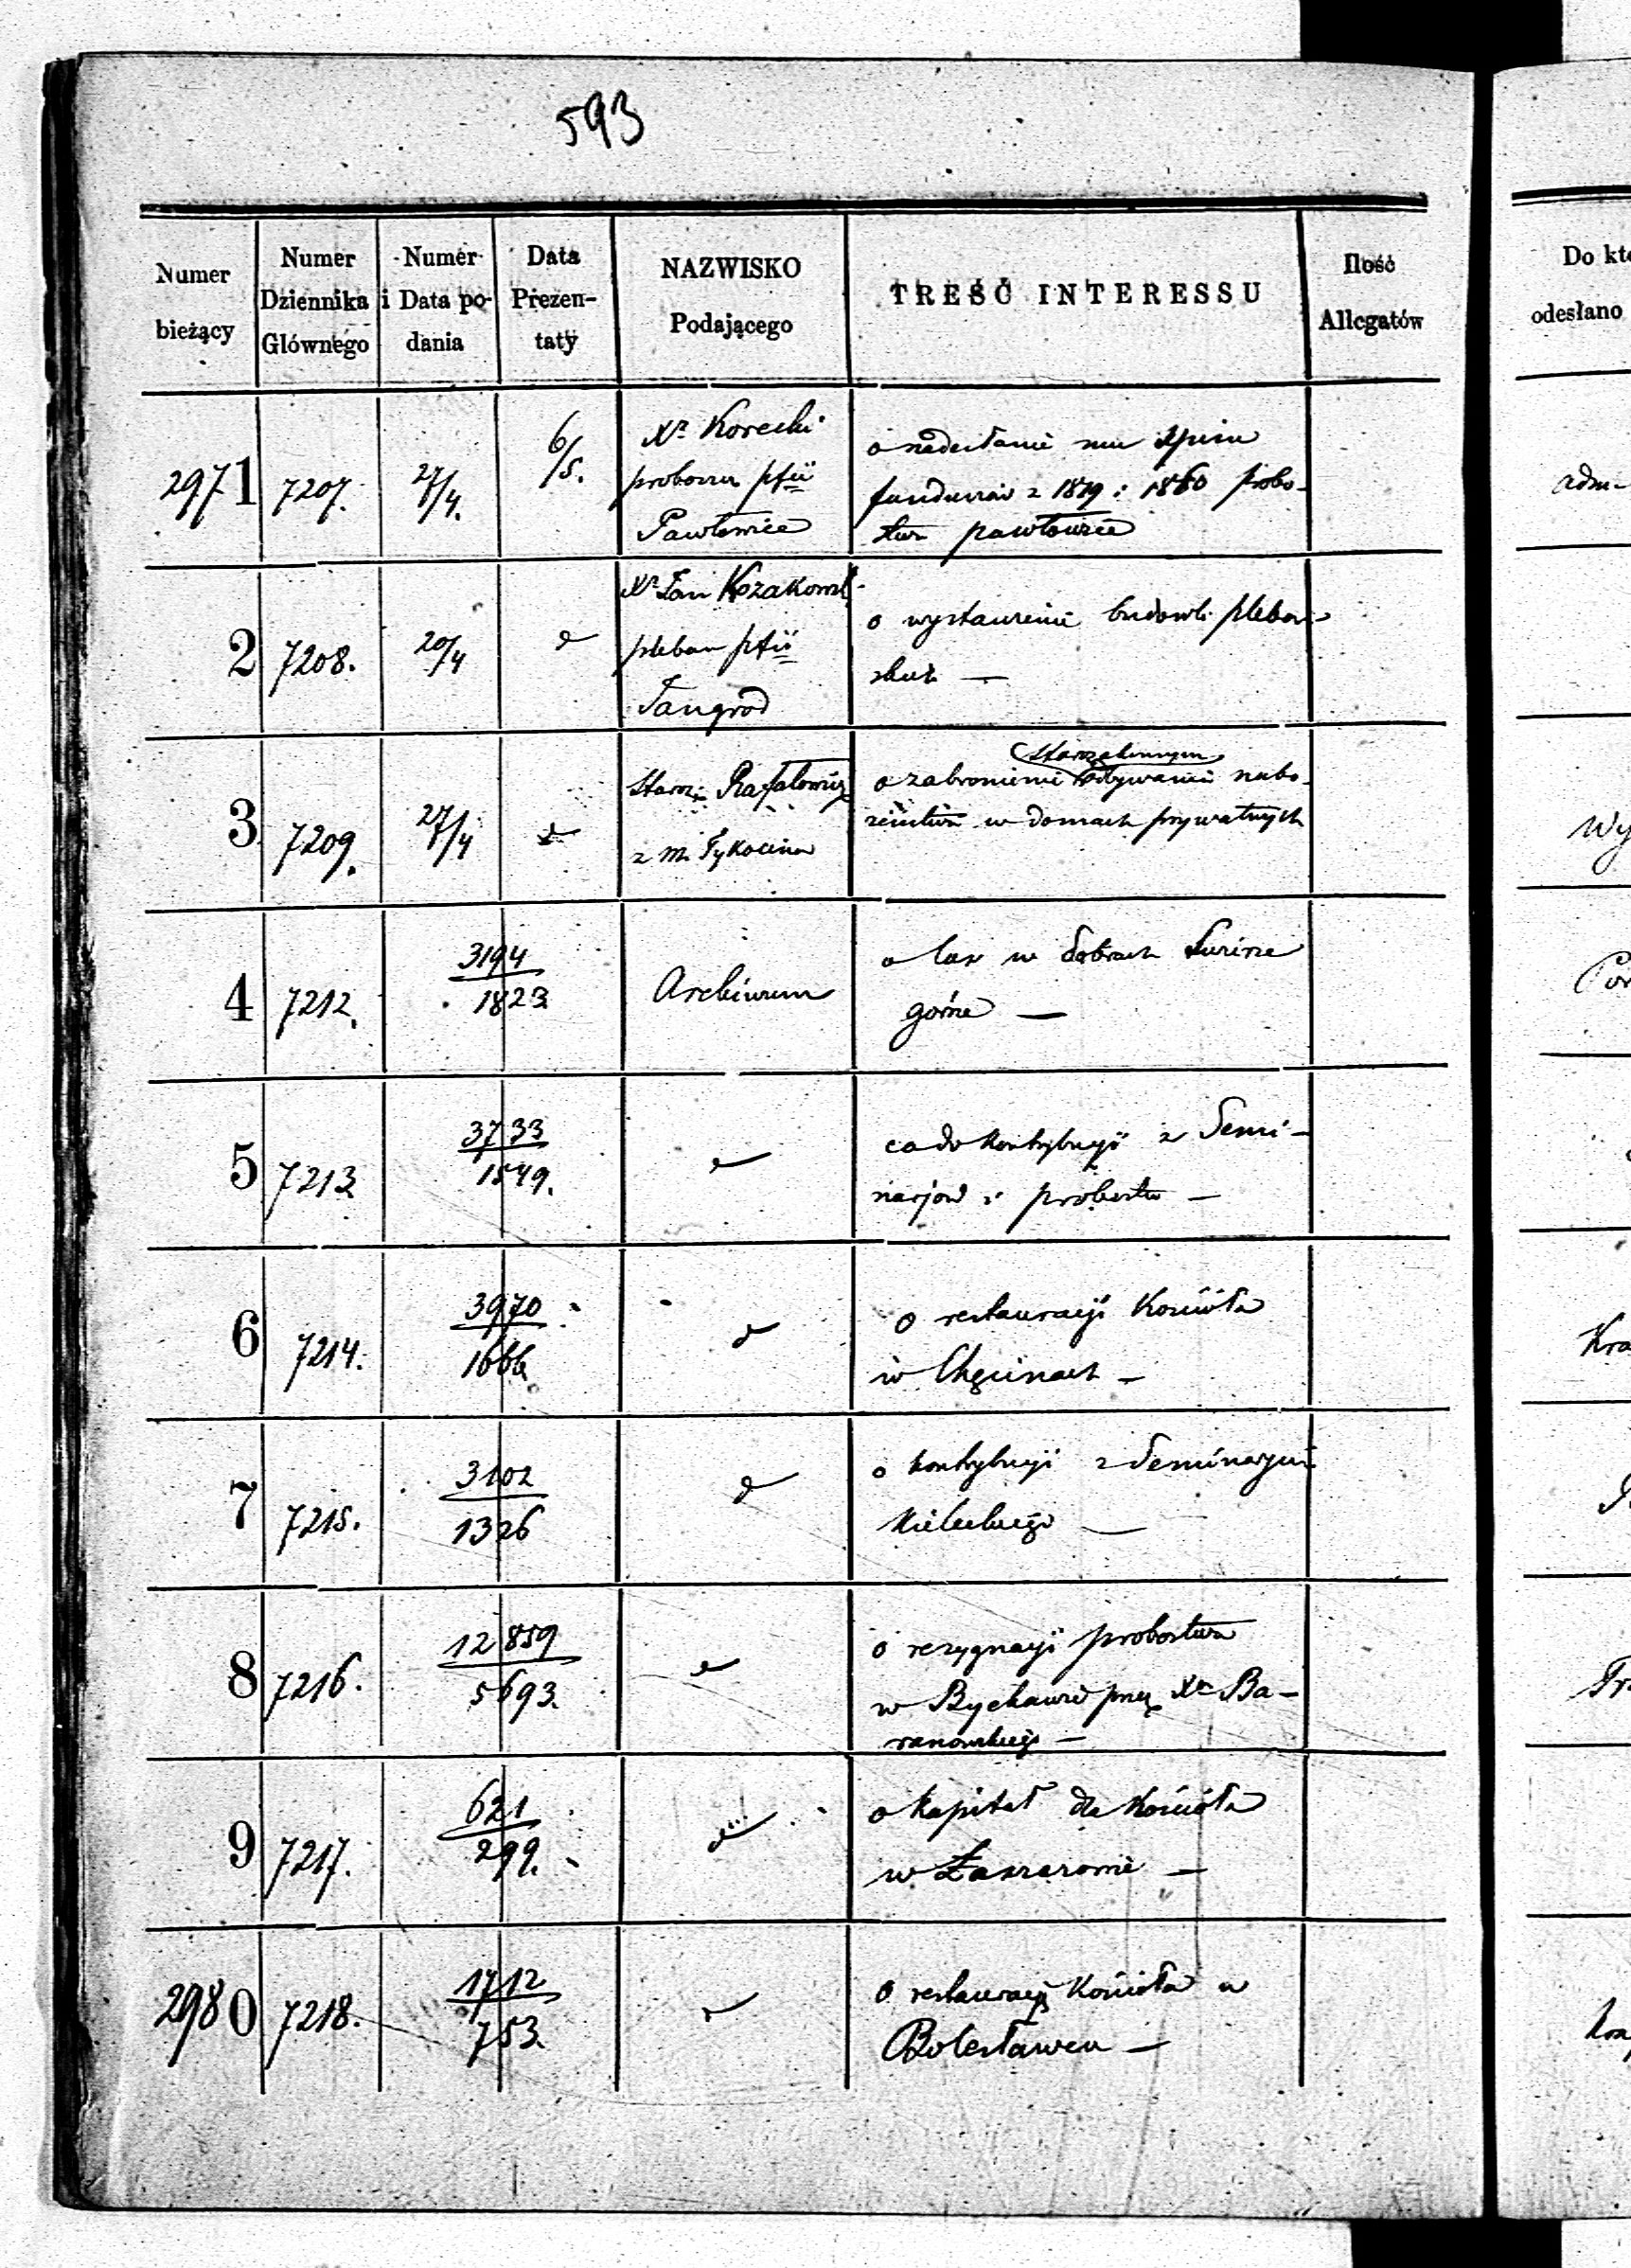 593
Numer bieżący
Numer Dziennika Głównego
Numer i Data podania
Data Prezentaty
NAZWISKO Podającego
TREŚĆ INTERESSU
Ilość Allegatów
Do kt
odesłano
2971 7207. 27/4. 6/5.
Xº Korecki
proboszcz pfii
Pawłowice
o nadesłanie mu spisu
funduszów z 1819 i 1860 probo-
stwa pawłowice
adm-
2 7208. 20/4 d
Xº Jan Kozakows
pleban pfii
Tarngrod
o wystawienie budowli pleban-
skich —
3 7209. 27/4 d
Starz. Rafałowicz
z m. Tykocina
starozakonnym
o zabronienie odbywania nabo-
żeństwa w domach prywatnych
Wy
4 7212. 3194/1823 Archiwum
o las w dobrach
górne —
5 7213 3733/1549. d
co do kontrybucyi z Semi-
narjow i probostw —
6 7214. 3970/1666 d
o restauracyi Kościoła
w Chęcinach —
Kra
7 7215. 3102/1326 d
o kontrybucyi z Seminaryum
Kieleckiego —
8 7216. 12859/5693. d
o rezygnacyi probostwa
w Bychawie przez Xa Ba-
ranowskiego —
9 7217. 621/299. d
o kapitał dla Kościoła
w —
2980 7218. 1712/753. d
o restauracyę Kościoła w
Bolesławcu —